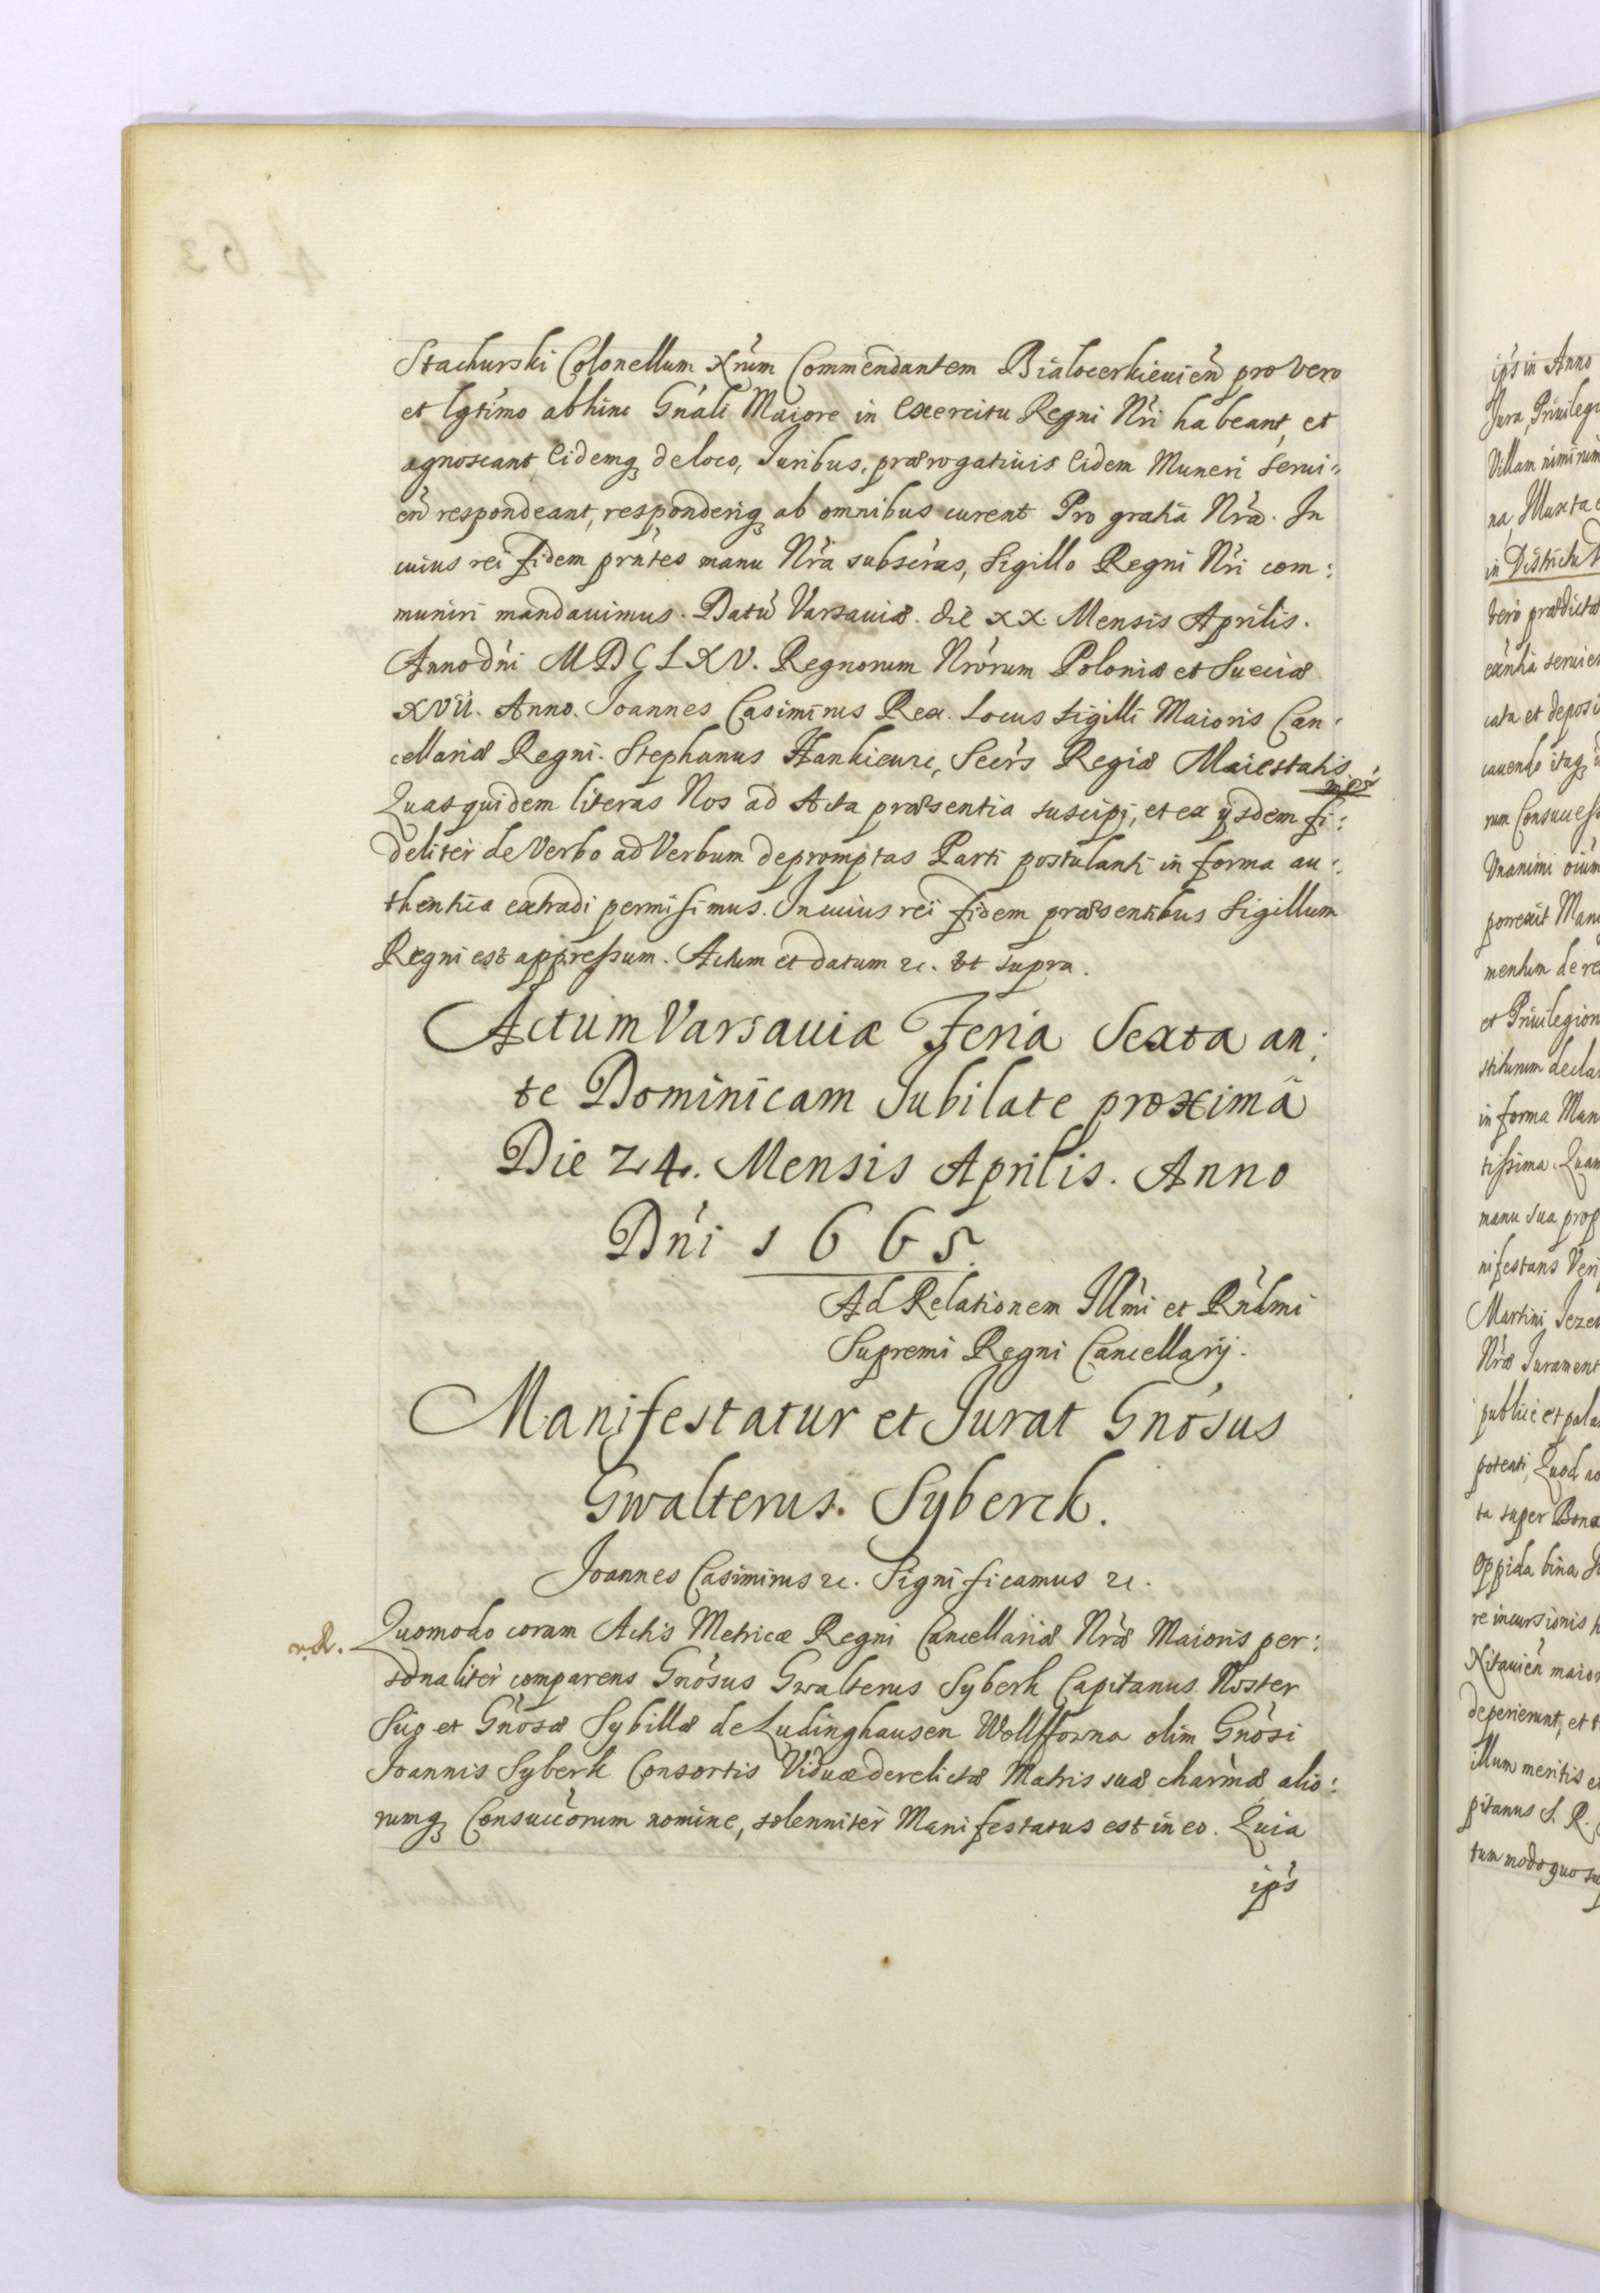 Stachurski Colonellum Nrum Commendantem Bialocerkieuien pro vero
et lgtimo abhinc Gnali Maiore in Exercitu Regni Nri habeant, et
agnoscant, Eidemq de loco, Juribus, prærogatiuis Eidem Muneri serui=
en respondeant, responderiq ab omnibus curent Pro gratia Nra. In
cuius rei fidem prntes manu Nra subscras, Sigillo Regni Nri com:
muniri mandauimus. Datu Varsauiæ. die XX. Mensis Aprilis.
Anno dni MDCLXV. Regnorum Nrorum Poloniæ et Sueciæ
XVII. Anno. Joannes Casimirus Rex. Locus Sigilli Maioris Can:
cellariæ Regni. Stephanus Hankieuic, Secrs Regiæ Maiestatis
mpr
Quas quidem literas Nos ad Acta præsentia suscipi, et ex ijsdem fi:
deliter de Verbo ad Verbum depromptas Parti postulanti in forma au:
thentica extradi permisimus. In cuius rei fidem præsentibus Sigillum
Regni est appressum. Actum et datum etc. Vt supra.
Actum Varsauiæ Feria Sexta an:
te Dominicam Jubilate proximã
Die 24. Mensis Aprilis. Anno
Dni 1665.
Ad Relationem Illmi et Rndmi
Supremi Regni Cancellarij.
Manifestatur et Jurat Gnosus
Gwalterus. Syberck.
Joannes Casimirus etc. Significamus etc.
Quomodo coram Actis Metricæ Regni Cancellariæ Nræ Maioris per:
sonaliter comparens Gnosus Gwalterus Syberk Capitanus Noster
Suo et Gnosæ Sybillæ de Ludinghausen Wollffowna olim Gnosi
Joannis Syberk Consortis Viduæ derelictæ Matris suæ charmæ alio:
rumq Consuccorum nomine, solenniter Manifestatus est in eo. Quia
ips
ips in Anno
Jura, Priuileg
Villam nimirum
in Districtu
Vnanimi
porrexit
et Priuilegion
in forma
manu sua prop
nifestans
Martini
Nræ Jurament
ta super Bona
oppida bina
re incursionis
deperierunt, et
illum meritis
pitanus S. R.
tum modo quo